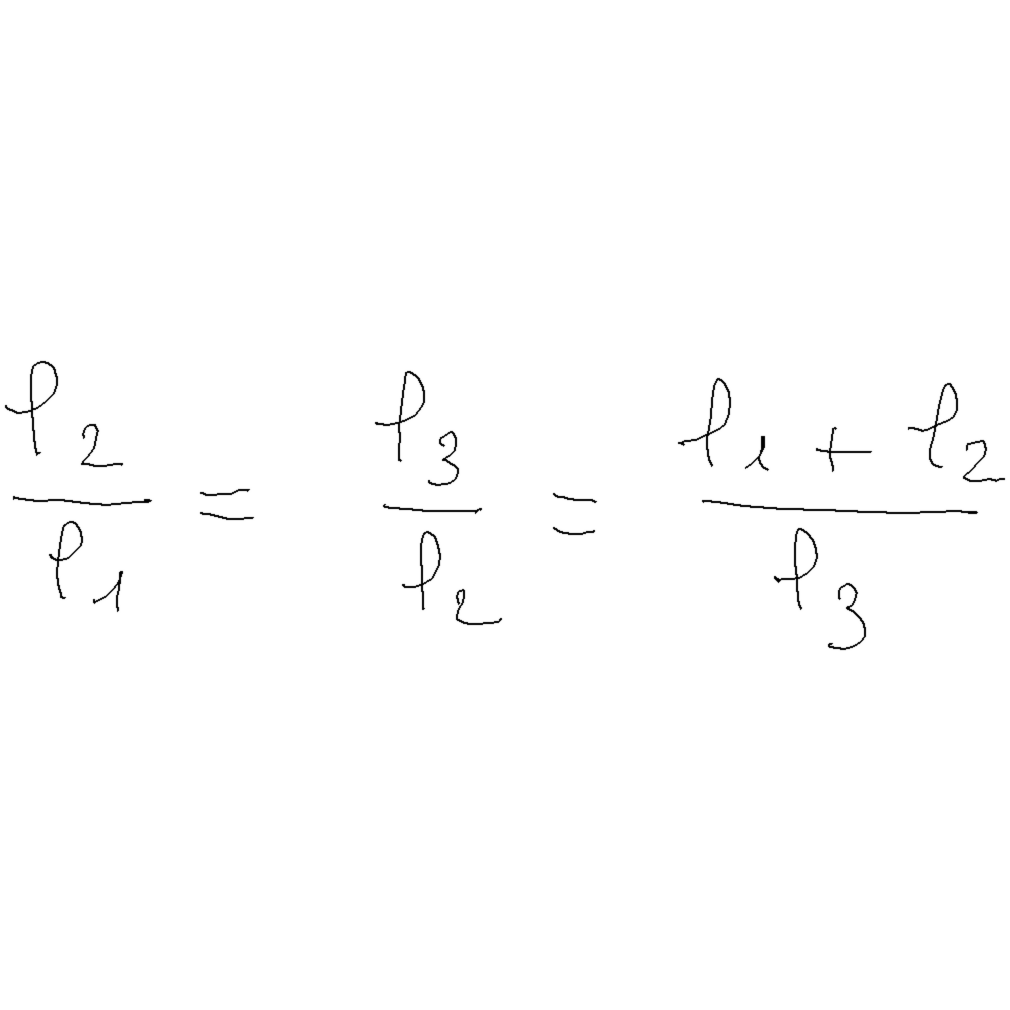 \frac{l_2}{l_1} = \frac{l_3}{l_2} = \frac{l_1 + l_2}{l_3}